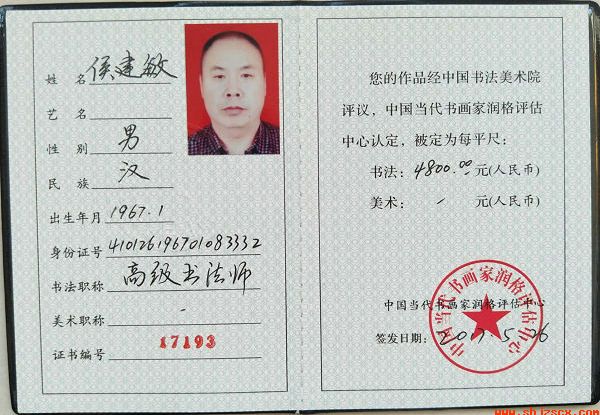 姓 名 侯建敏
艺 名
性 别 男
民 族 汉
出生年月 1967.1
身份证号 410126196701083332
书法职称 高级书法师
美术职称 -
证书编号 17193
您的作品经中国书法美术院
评议，中国当代书画家润格评估
中心认定，被定为每平尺：
书法：4800.00元(人民币)
美术： / 元(人民币)
中国当代书画家润格评估中心
中国当代书画家润格评估中心
签发日期：2017.5.26
www.shjzscx.com